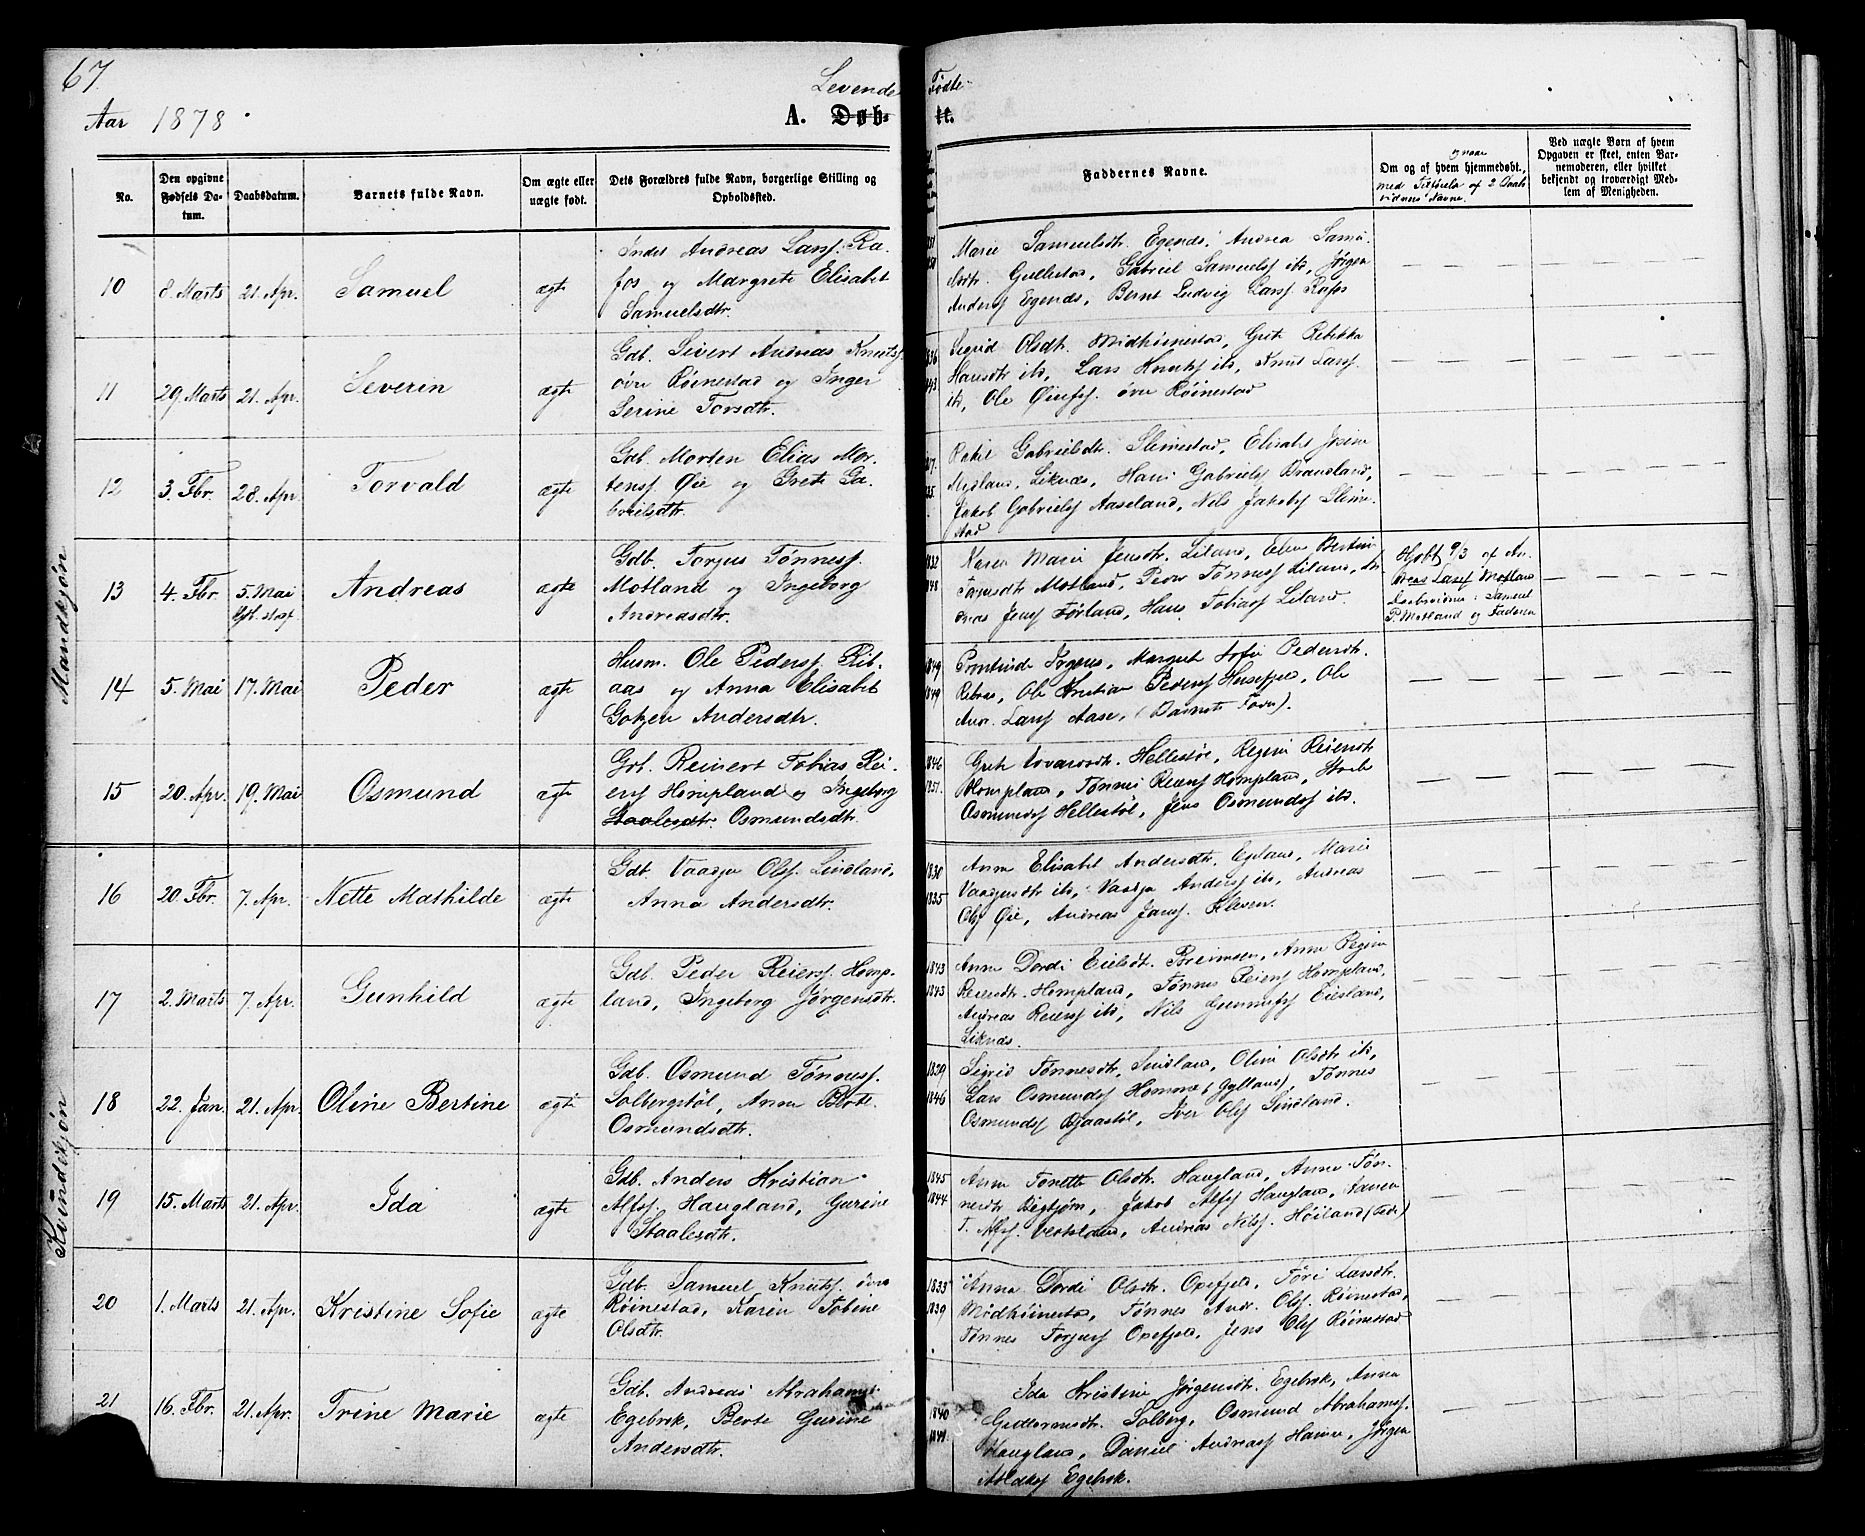 67
Levende Fødte
Aar 1878.
A. Døbte.
No.
Den opgivne Fødsels Datum.
Daabsdatum.
Barnets fulde Navn.
Om ægte eller uægte født.
Dets Forældres fulde Navn, borgerlige Stilling og Opholdssted.
Faddernes Navne.
Om og af hvem hjemmedøbt,
Ved uægte Børn af hvem Opgaven er skeet, enten Barnemoderen, eller hvilket bekjendt og troværdigt Medlem af Menigheden.
Mandkjøn
10 8. Marts 21. Apr. Samuel ægte
Andreas Larss. Ra-
fos og Margrete Elisabet
Samuelsdtr.
Marie Samuelsdtr. Egends, Andrea Samu-
elsdtr. Gullestad, Gabriel Samuelss ibd, Jørgen
Anderss Egends, Bernt Ludvig Larss. Rafos
11 29. Marts 21. Apr. Severin ægte
Gdb. Sivert Andreas Knuts.
øvre Røinestad og Inger
Serine Torsdtr.
1836
1843
Sigrid Olsdtr. Midthøinestad, Grete Rebekka
Hansdtr ibd, Lars ibd, Knut Larss.
ibd, Ole øvre Røinestad
12 3. Fbr. 28. Apr Torvald ægte
Gdb. Morten Elias Mor-
tenss. Øie og Grete Ga-
brielsdtr.
Rakel Gabrielsdtr. Slimestad, Elisabet
Liknes, Hans Gabrielss Dransland,
Jakob Gabrielss Aaseland, Nils Jakobss Slime-
stad
13 4. Fbr. 5. Mai Andreas ægte
Gdb. Torjus Tønness.
Motland og Ingeborg
Andreasdtr.
1832
1848
Karen Marie Jensdtr. Liland, Elen Bertine
Motland, Peder Tønness Liland, An-
dreas Jenss Førland, Hans Tobiass Liland.
Hjdbt 9/3 af An-
dreas Larss Motland
Daabsvidner: Samuel
P. Motland og Faderen
14 5. Mai 17. Mai Peder ægte
Husm. Ole Pederss. Rib-
aas og Anna Elisabet
Gotzen Andersdtr.
1849
1849
Margret Sofie Pedersdtr.
Ribaas, Ole Kristian Pederss Husefjeld, Ole
Andr. Larss Aase, (Barnets Fader).
15 20. Apr. 19. Mai Osmund ægte
Gdb. Reinert Tobias Rei-
erss Hompland og Ingeborg
Staalesdtr. Osmundsdtr.
1846
1851.
Grete Hellestøl, Regine Reiersdtr
Hompland, Tønnes Reierss Hompland,
Osmundss Hellestøl, Jens Osmundss ibd.
Kvindekjøn
16 20. Fbr. 7. Apr. Nette Mathilde ægte
Gdb. Vaagje Olss. Lindland,
Anna Andersdtr.
1830
1835
Anna Elisabet Andersdtr. Egeland, Marie
Vaagesdtr ibd, Vaagje Anderss ibd, Andreas
Olss Øie, Andreas Janss. Kleven.
17 2. Marts 7. Apr. Gunhild ægte
Gdb. Peder Reierss. Homp-
land, Ingeborg Jørgensdtr.
1843
1843
Anna Dordi Eielsdtr. Breimoen, Anna Regine
Reiersdtr. Hompland, Tønnes Reierss Hompland,
Andreas Reierss ibd, Nils Gunnufss Eiesland,
Liknes.
18 22. Jan. 21. Apr. Oline Bertine ægte
Gdb. Osmund Tønness.
Solbergstøl, Anna Berte
Osmundsdtr.
1839
1846
Sigrid Tønnesdtr, Sindland, Oline Olsdtr ibd,
Lars Osmundss Homme (Gylland), Tønnes
Osmundss Bjaastøl, Iver Olss Sindland.
19 15. Marts 21. Apr. Ida ægte
Gdb. Anders Kristian
Alfss. Haugland, Gurine
Staalesdtr.
1845
1844
Anna Tonette Olsdtr. Haugland, Anna Tøn-
nesdtr Bigtjørn, Jakob Alfss Haugland,
T. Alfss. Andreas Nilss. Høiland (Fedr)
20 1. Marts 21. Apr. Kristine Sofie ægte
Gdb. Samuel Knutss. øvre
Røinestad, Karen Tobine
Olsdtr.
1835
1839
Anna Dordi Olsdtr. Oxefjeld, Tøri Larsdtr.
Midthøinestad, Tønnes Andr. Olss. Røinestad,
Tønnes Torjuss Oxefjeld, Jens Olss Røinestad
21 16. Fbr. 21. Apr. Trine Marie ægte
Gdb. Andreas Abrahams.
Egebrok, Berte Gurine
Andersdtr.
1840
1841
Ida Kristine Jørgensdtr. Egebrok, Anna
Guttormsdtr. Solberg, Osmund Abrahamss.
Haugland, Daniel Andreass Hamre, Jørgen
Egebrok.